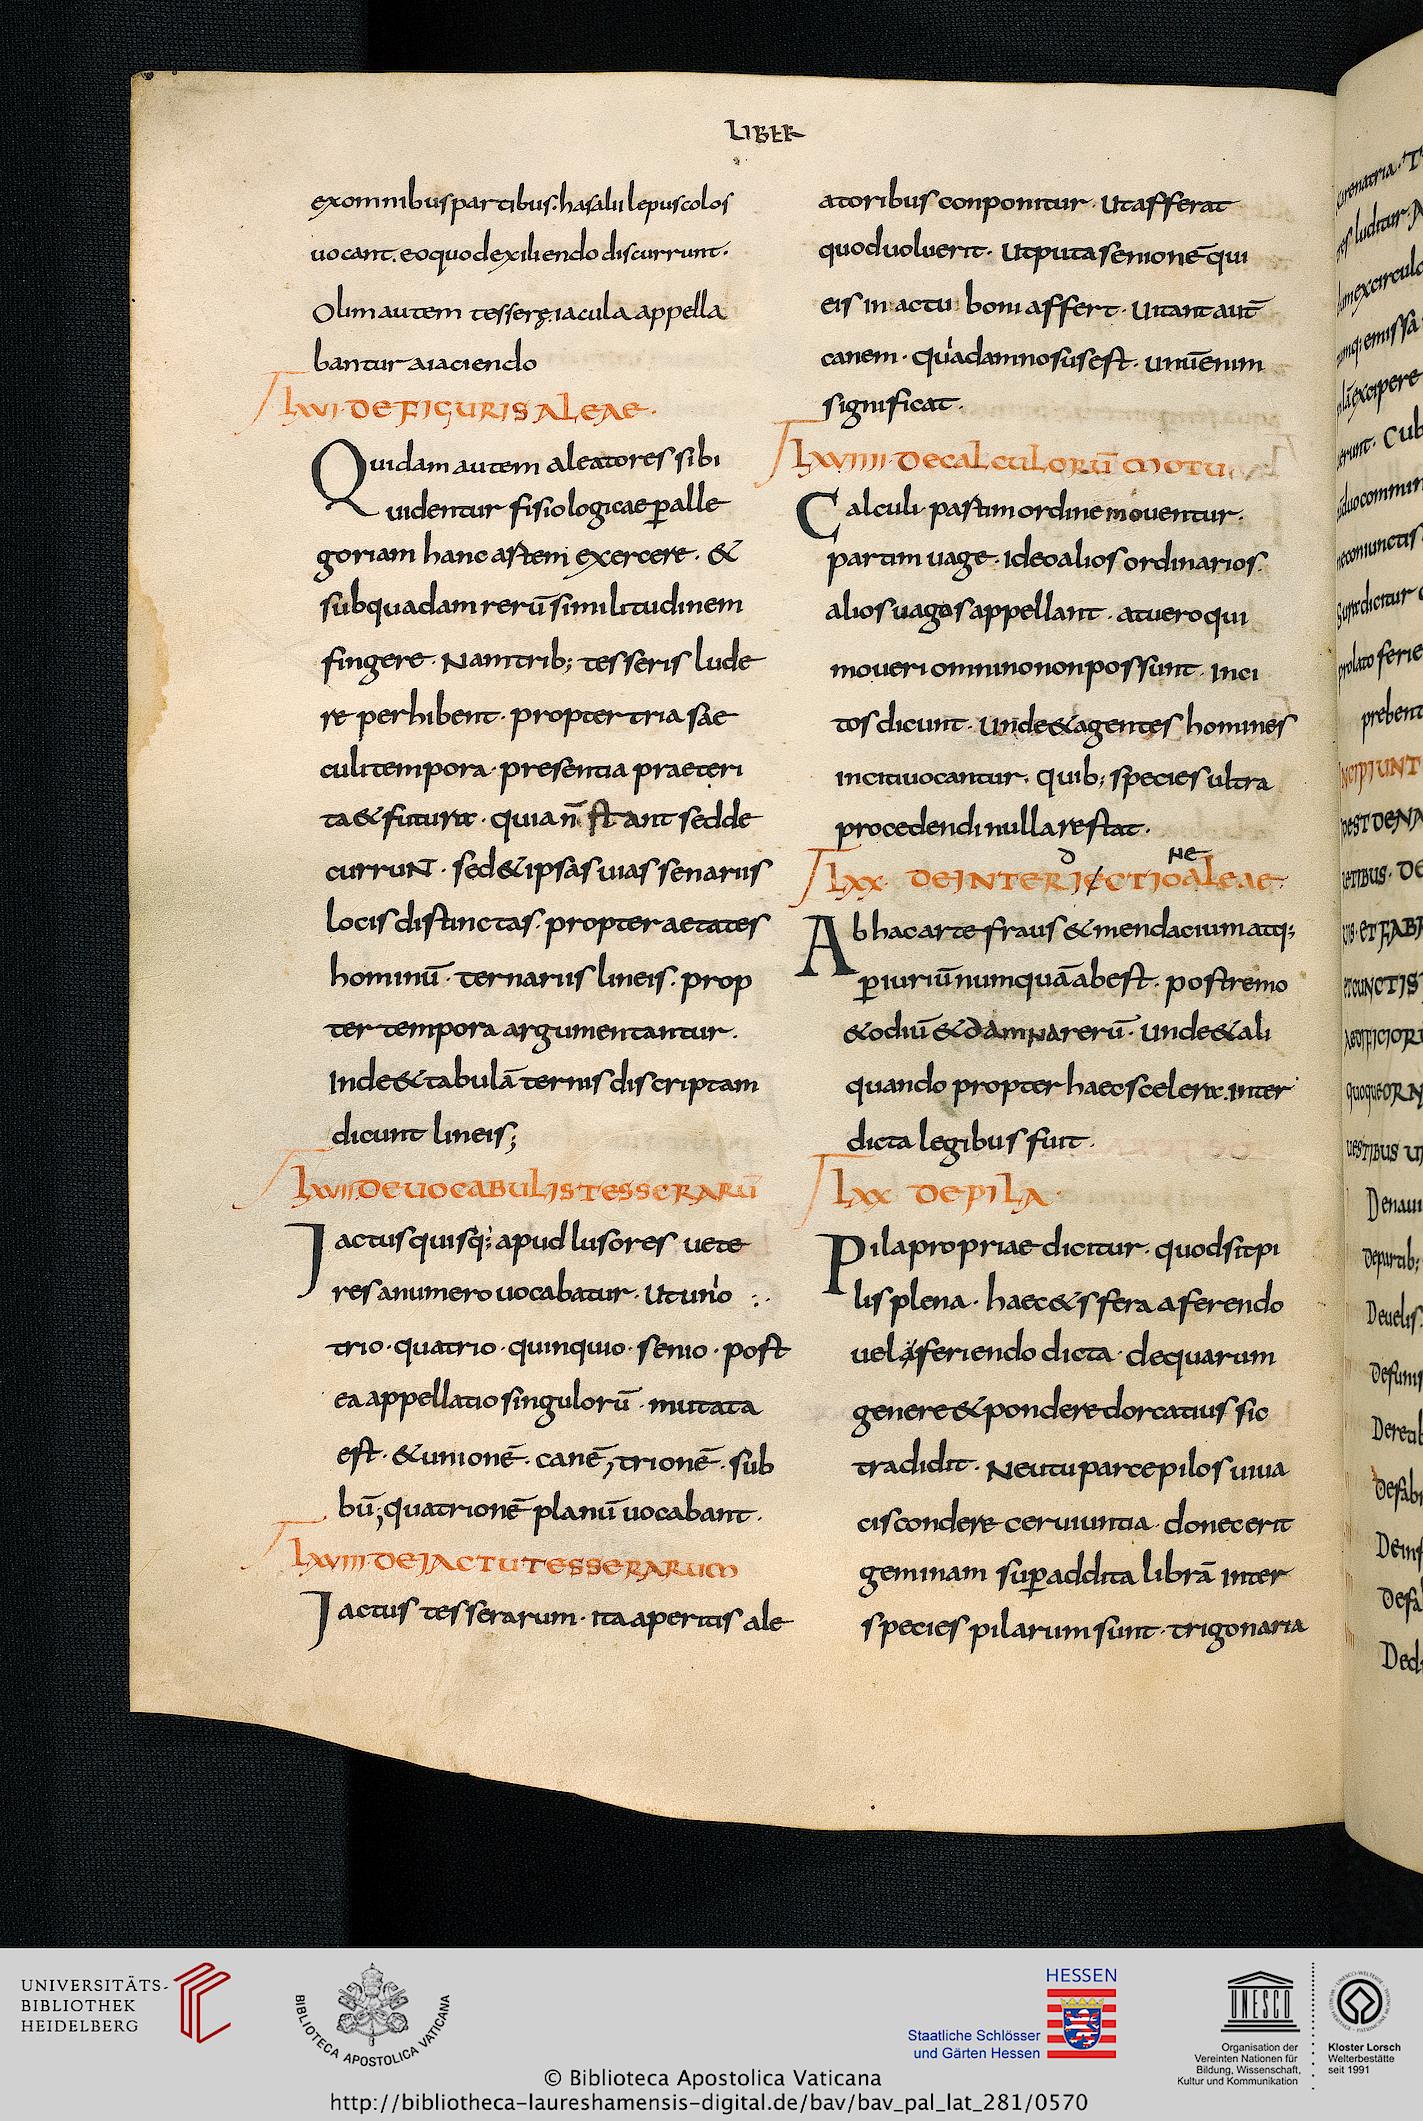 LIBER
exomnibuspartibus. hasaliilepuscolos
uocant. eoquodexiliendodiscurrunt.
Olimautem tesserę iacula appella
bantur aiaciendo
lxvi. DE FIGURIS ALEAE.
Quidam autem aleatores sibi
uidentur fisiologicae ꝑalle
goriam hanc artem exercere. &
subquadam rerū similitudinem
fingere. Namtrib; tesseris lude
re perhibent. propter tria sae
culi tempora. presentia praeteri
ta & futura. quia n̄ stant sedde
currunt. sed & ipsas uias senariis
locis distinctas. propter aetates
hominū. ternariis lineis. prop
ter tempora argumentantur.
Inde & tabulā ternis discriptam
dicunt lineis;
lxvii DE UOCABULIS TESSERARŪ
Iactus quisq; apud lusores uete
res anumero uocabatur. Ut unio
trio. quatrio. quinquio. senio. post
ea appellatio singulorū. mutata
est. & unionē. canē, trionē. sub
bū; quatrionē planū uocabant.
lxviii DE IACTU TESSERARUM
Iactus tesserarum. ita a peritis ale
atoribus conponitur. Ut afferat
quod uoluerit. Ut puta senionē qui
eis in actu boni affert. Uitant aut̄
canem. quia damnosus est. unū enim
significat.
lxviiii. De calculorū motu
Calculi. partim ordine mouentur.
partim uage. Ideo alios ordinarios.
alios uagos appellant. at uero qui
moueri omnino non possunt. Inci
tos dicunt. Unde & agentes homines
inciti uocantur. quib; species ultra
procedendi nulla restat.
d ne
lxx. DE INTERIECTIO ALEAE.
Ab hac arte fraus & mendacium atq;
ꝑiuriū numquā abest. postremo
& odiū & damna rerū. Unde & ali
quando propter haec scelera. inter
dicta legibus fuit.
lxx DE PILA.
Pila propriae dicitur. quod sit pi
lis plena. haec & sfera a ferendo
uel a feriendo dicta. de quarum
genere & pondere dorcatius sic
tradidit. Neu tu parce pilos uiua
cis condere ceruiuntia. donec erit
geminam suꝑ addita librā inter
species pilarum sunt. trigonaria
UNIVERSITÄTS-
BIBLIOTHEK
HEIDELBERG
BIBLIOTECA APOSTOLICA VATICANA
HESSEN
Staatliche Schlösser
und Gärten Hessen
UNESCO
Organisation der
Vereinten Nationen für
Bildung, Wissenschaft,
Kultur und Kommunikation
Kloster Lorsch
Welterbestätte
seit 1991
© Biblioteca Apostolica Vaticana
http://bibliotheca-laureshamensis-digital.de/bav/bav_pal_lat_281/0570